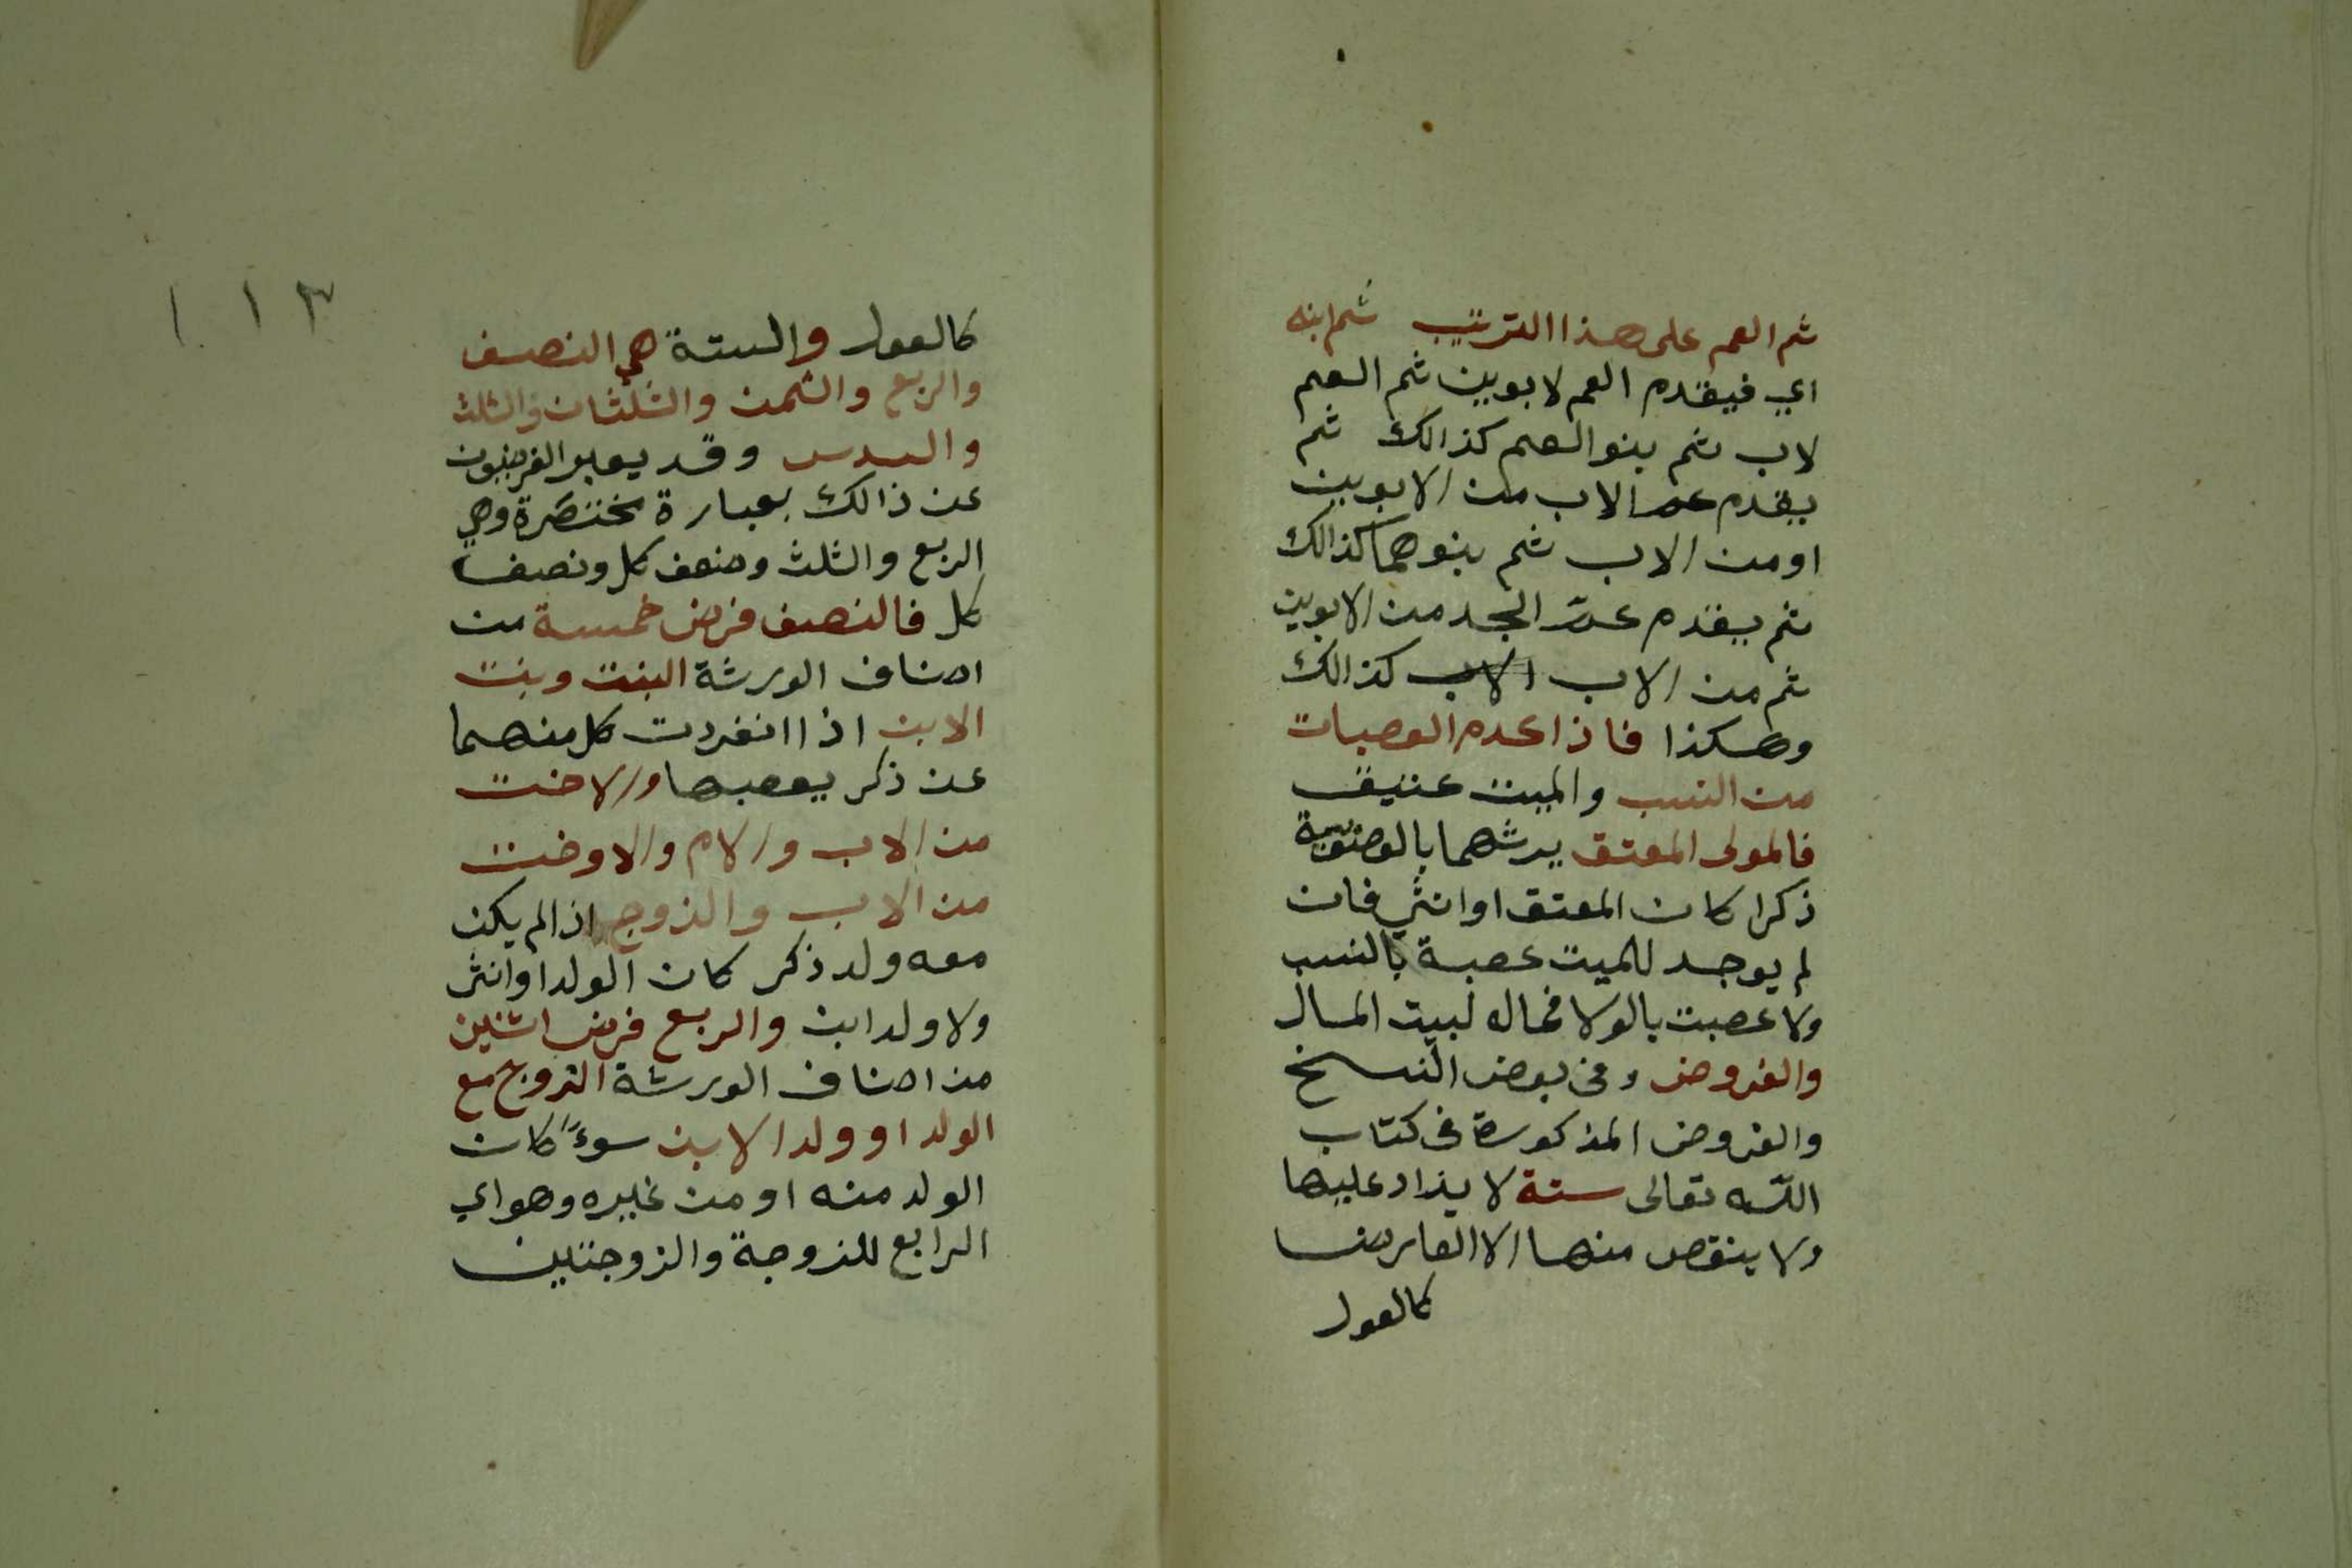 ثم العم على هذا الترتيب ثم ابنه
اي فيقدم العم لابوين ثم العم
لاب ثم بنو العم كذالك ثم
يقدم عم الاب من الابوين
او من الاب ثم بنوهما كذالك
ثم يقدم عم الجد من الابوين
ثم من الاب الاب كذالك
وهكذا فاذا عدم العصبات
من النسب والميت عتيق
فالمولى المعتق يرثهما بالعصوبة
ذكرا كان المعتق او انثي فان
لم يوجد للميت عصبة بالنسب
ولا عصبت بالولا فماله لبيت المال
والفروض وفي بعض النسخ
والفروض المذكورة في كتاب
الله تعالى ستة لا يزاد عليها
ولا ينقص منها الا لعارض
كالعول
١١٣
كالعول والستة هي النصف
والربع والثمن والثلثان والثلث
والسدس وقد يعبر الفرضيون
عن ذالك بعبارة مختصرة وهي
الربع والثلث وضعف كل ونصف
كل فالنصف فرض خمسة من
اصناف الورثة البنت وبنت
الابن اذا انفردت كل منهما
عن ذكر يعصبها والاخت
من الاب والام والاوخت
من الاب والزوج اذا لم يكن
معه ولد ذكر كان الولد او انثى
ولا ولد ابن والربع فرض اثنين
من اصناف الورثة الزوج مع
الولد او ولد الابن سوءً كان
الولد منه او من غيره وهو اي
الرابع للزوجة والزوجتين